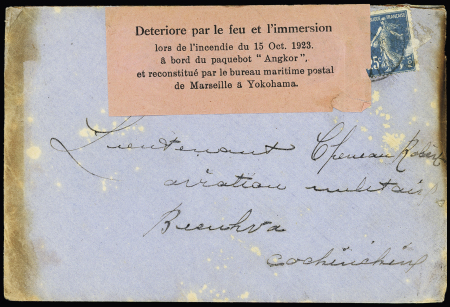 Deteriore par le feu et l'immersion
lors de l'incendie du 15 Oct. 1923.
à bord du paquebot "Angkor",
et reconstitué par le bureau maritime postal
de Marseille à Yokohama.
Lieutenant
aviation militair
cochinchine